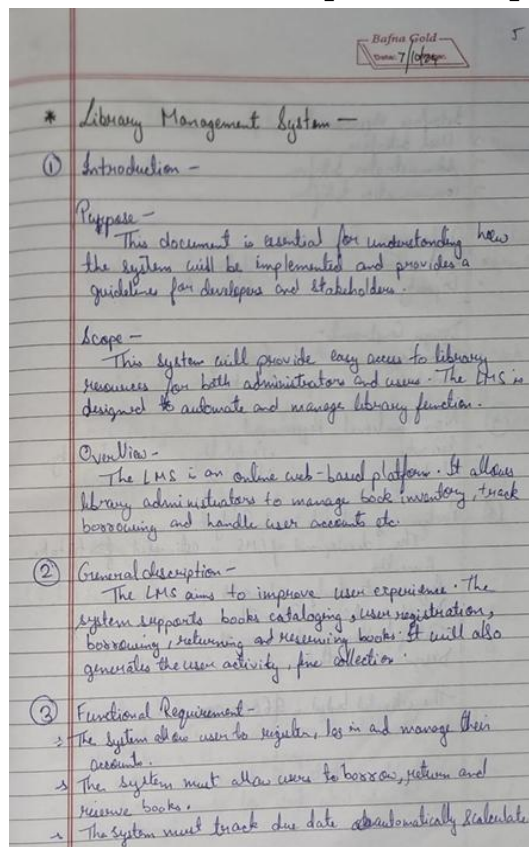 Bafna Gold
Date: 7/10/24
5
* Library Management System -
① Introduction -
Purpose -
This document is essential for understanding how
the system will be implemented and provides a
guideline for developers and stakeholders.
Scope -
This system will provide easy access to library
resources for both administrators and users. The LMS is
designed to automate and manage library function.
OverView -
The LMS is an online web-based platform. It allows
library administrators to manage book inventory, track
borrowing and handle user accounts etc.
② General description -
The LMS aims to improve user experience. The
system supports books cataloging, user registration,
borrowing, returning and reserving books. It will also
generates the user activity, fine collection.
③ Functional Requirement -
The system allow user to register, log in and manage their
accounts.
The system must allow users to borrow, return and
reserve books.
The system must track due date automatically & calculate